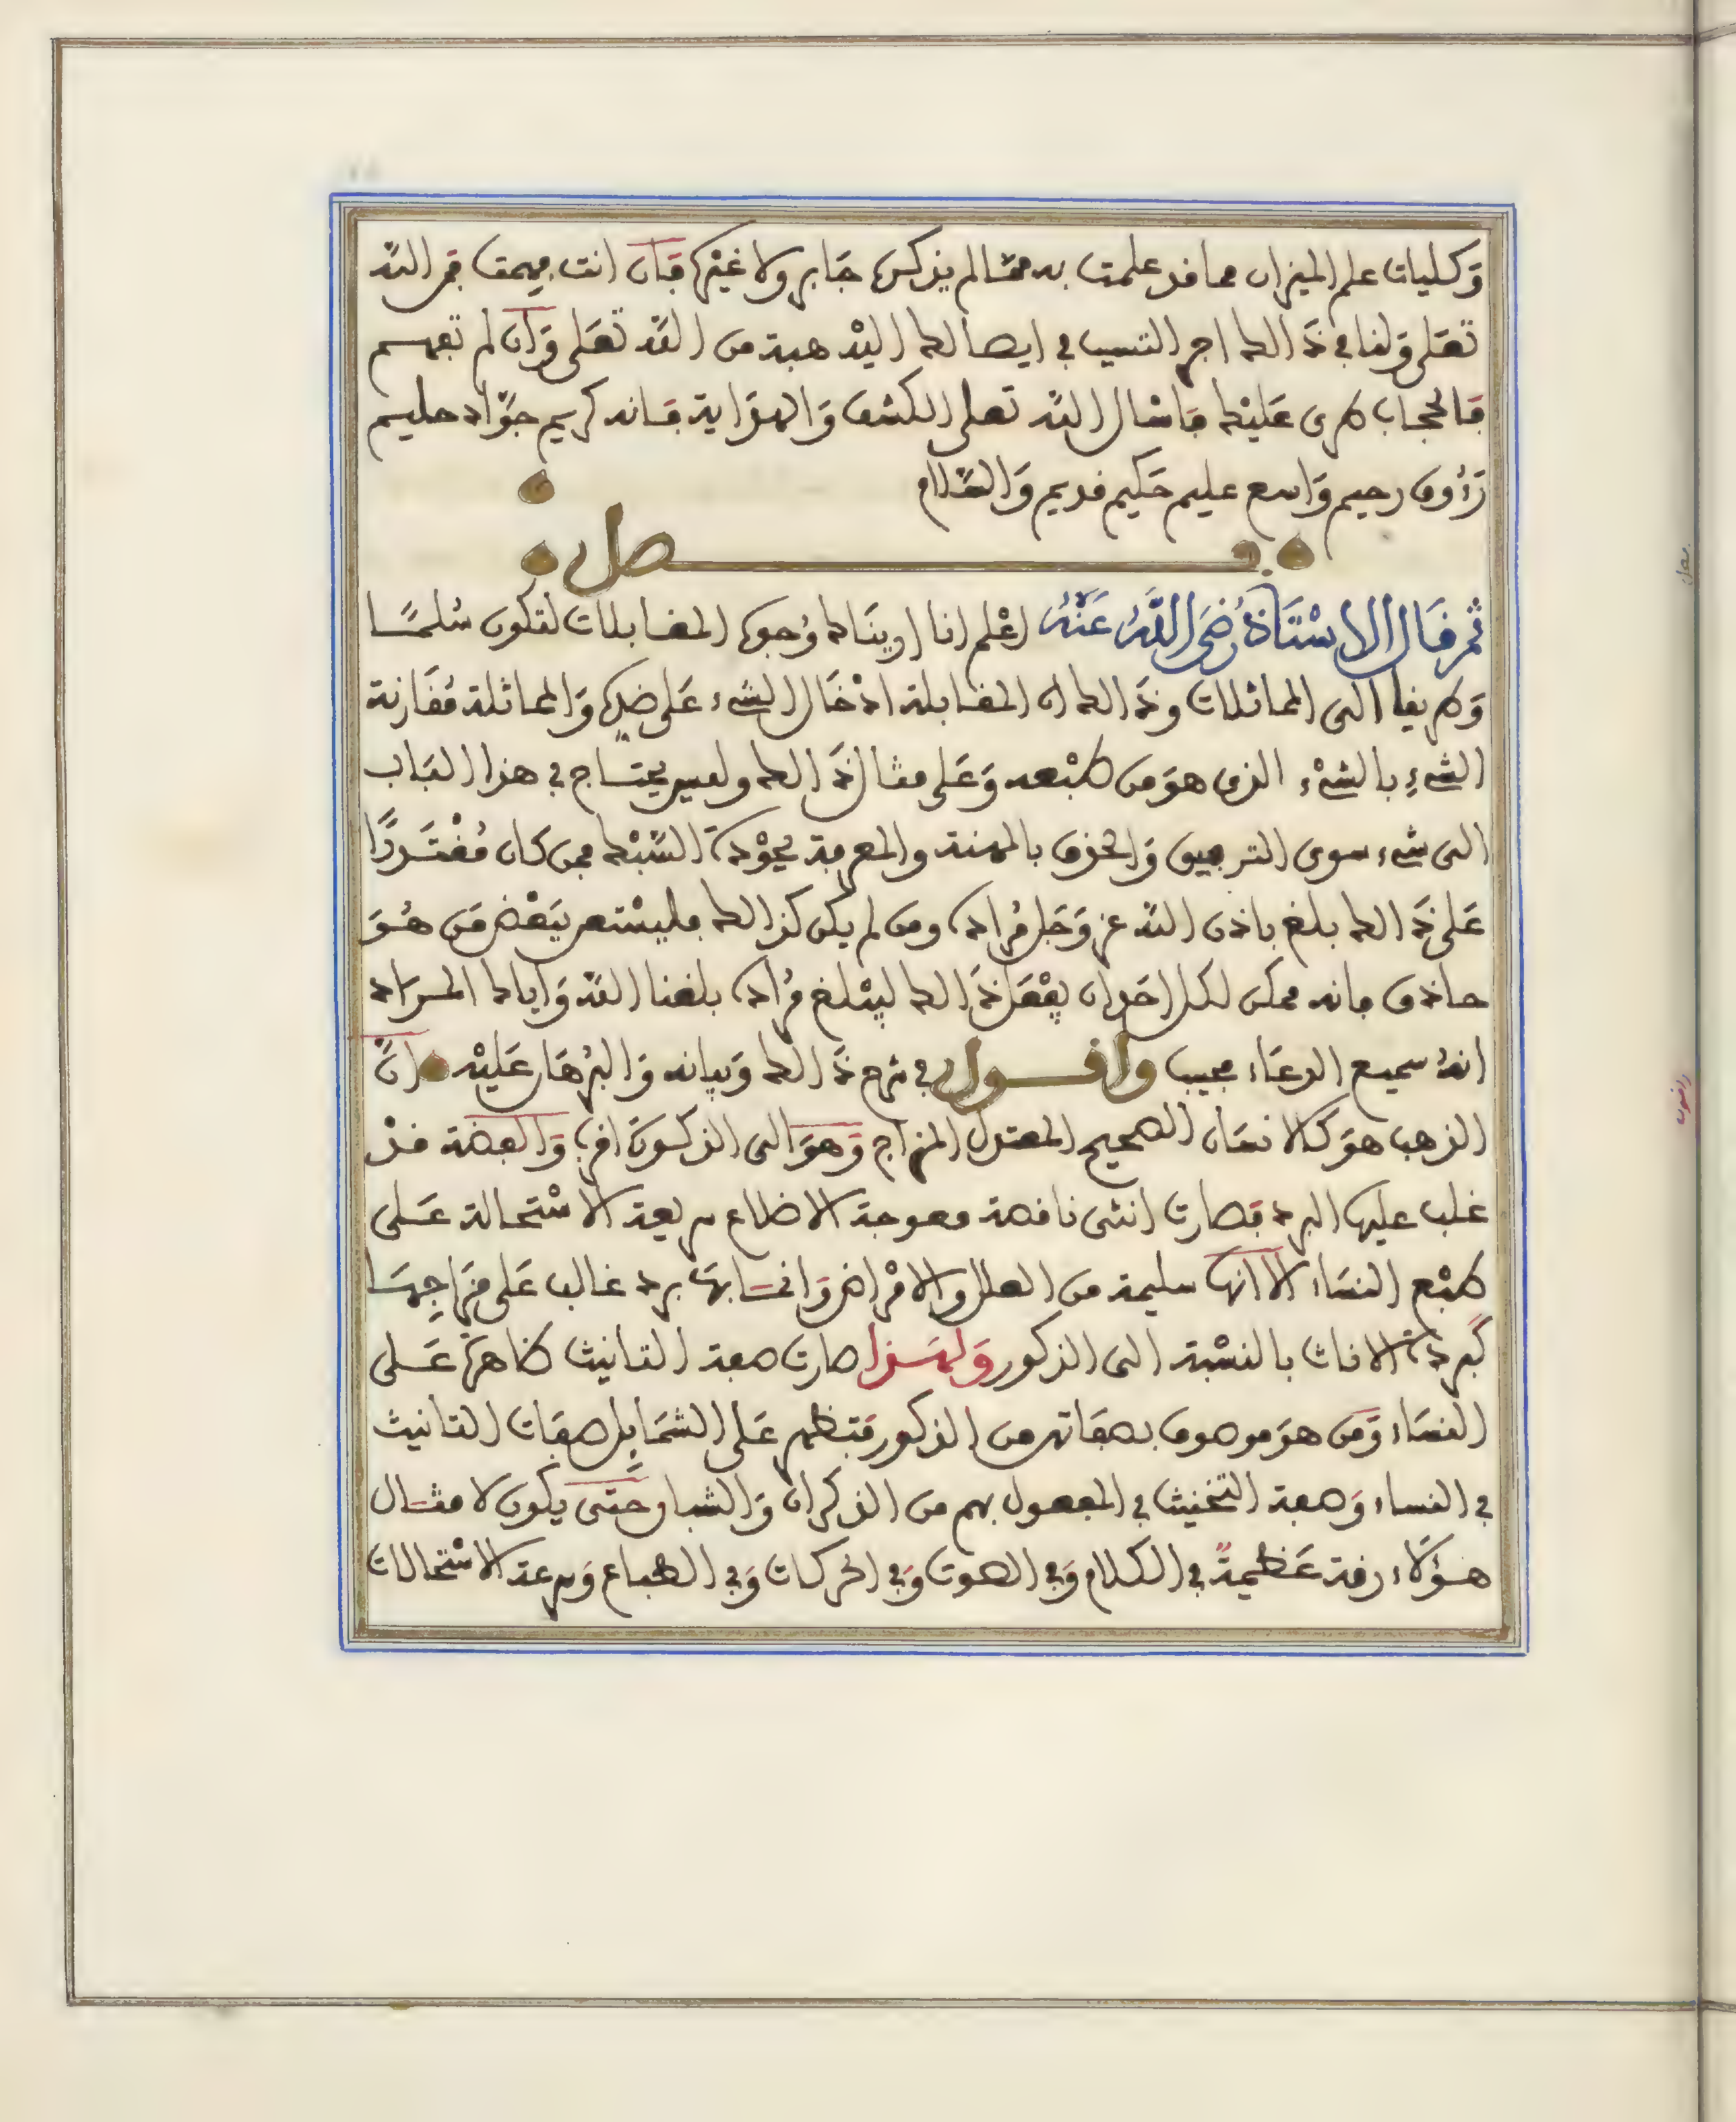 وَكليات علم الميزان مما قد علمت به مما لم يذكره جَابر ولا غيره فَإن انت فهمت فمن الله
تعَلى وَلنا في ذَالك اجر التسبب في ايصالك اليْه هبة من اللّه تعَلى وَان لم تفهم
فَالحجاب طرى عَليْك فَاسْال اللّه تعلى الكشف وَالهدَاية فَانه كريم جوَّاد حليم
رَءُوف رحيم وَاسع عليم حَكيم قديم وَالسَّلام
فصل
ثم قَال الاسْتَاذُ رَضِيَ اللَّهُ عَنْهُ اعْلم انا اريناك وُجوه المقابلات لتكون سُلمًا
وَطريقا الى المماثلات وذَالك ان المقابلة ادْخَال الشيء عَلى ضده وَالمماثلة مُقَارنة
الشيءِ بالشيْء الذي هوَ من طبْعه وَعَلى مثال ذَالك وليس يحتاج في هذا البَاب
الى شيء سوى الترفيق وَالحذق بالمهنة والمعرفة بجوْدة السَّبْك فمن كان مُقْتَدرًا
عَلى ذَالك بلغ باذن اللّه عز وَجَل مُراده ومن لم يكن كذالك فليسْتعن ببَعْض مَن هُوَ
حاذق فانه ممكن لكل احَد ان يفْعَل ذَالك ليبْلغ مُراده بلغنا اللّه وَاياك المرَاد
انهُ سميع الدعَاء مجيب واقول في شرح ذَالك وَبيانه وَالبُرهَان عَليْه انَّ
الذهب هوَ كالانسَان الصحيح المعتدل المزاج وَهوَ الى الذكورَة اقرب وَالفضة قدْ
غلب عليها البرد فصارت انثى ناقصة معوجة الاضلاع سريعة الاسْتحالة عَلى
طبْع النسَاء الا انها سليمة من العلل والامْراض وَانمَا بهَا برد غالب عَلى مزَاجِهَا
كبرد الاناث بالنسْبة الى الذكور وَلهَذا صارت صفة التانيث ظاهرة عَلى
النسَاء وَمَن هوَ موصوف بصفاتهن من الذكور فتظهر عَلى الشمَايِل صفَات التانيث
في النساء وَصفة التخنيث في المفعول بهم من الذكران وَالشباب حَتى يكون لامثَال
هؤلَاء رقة عَظيمةً في الكلام وَفي الصوت وَفي الحركات وَفي الطباع وَسرعة الاسْتحالات